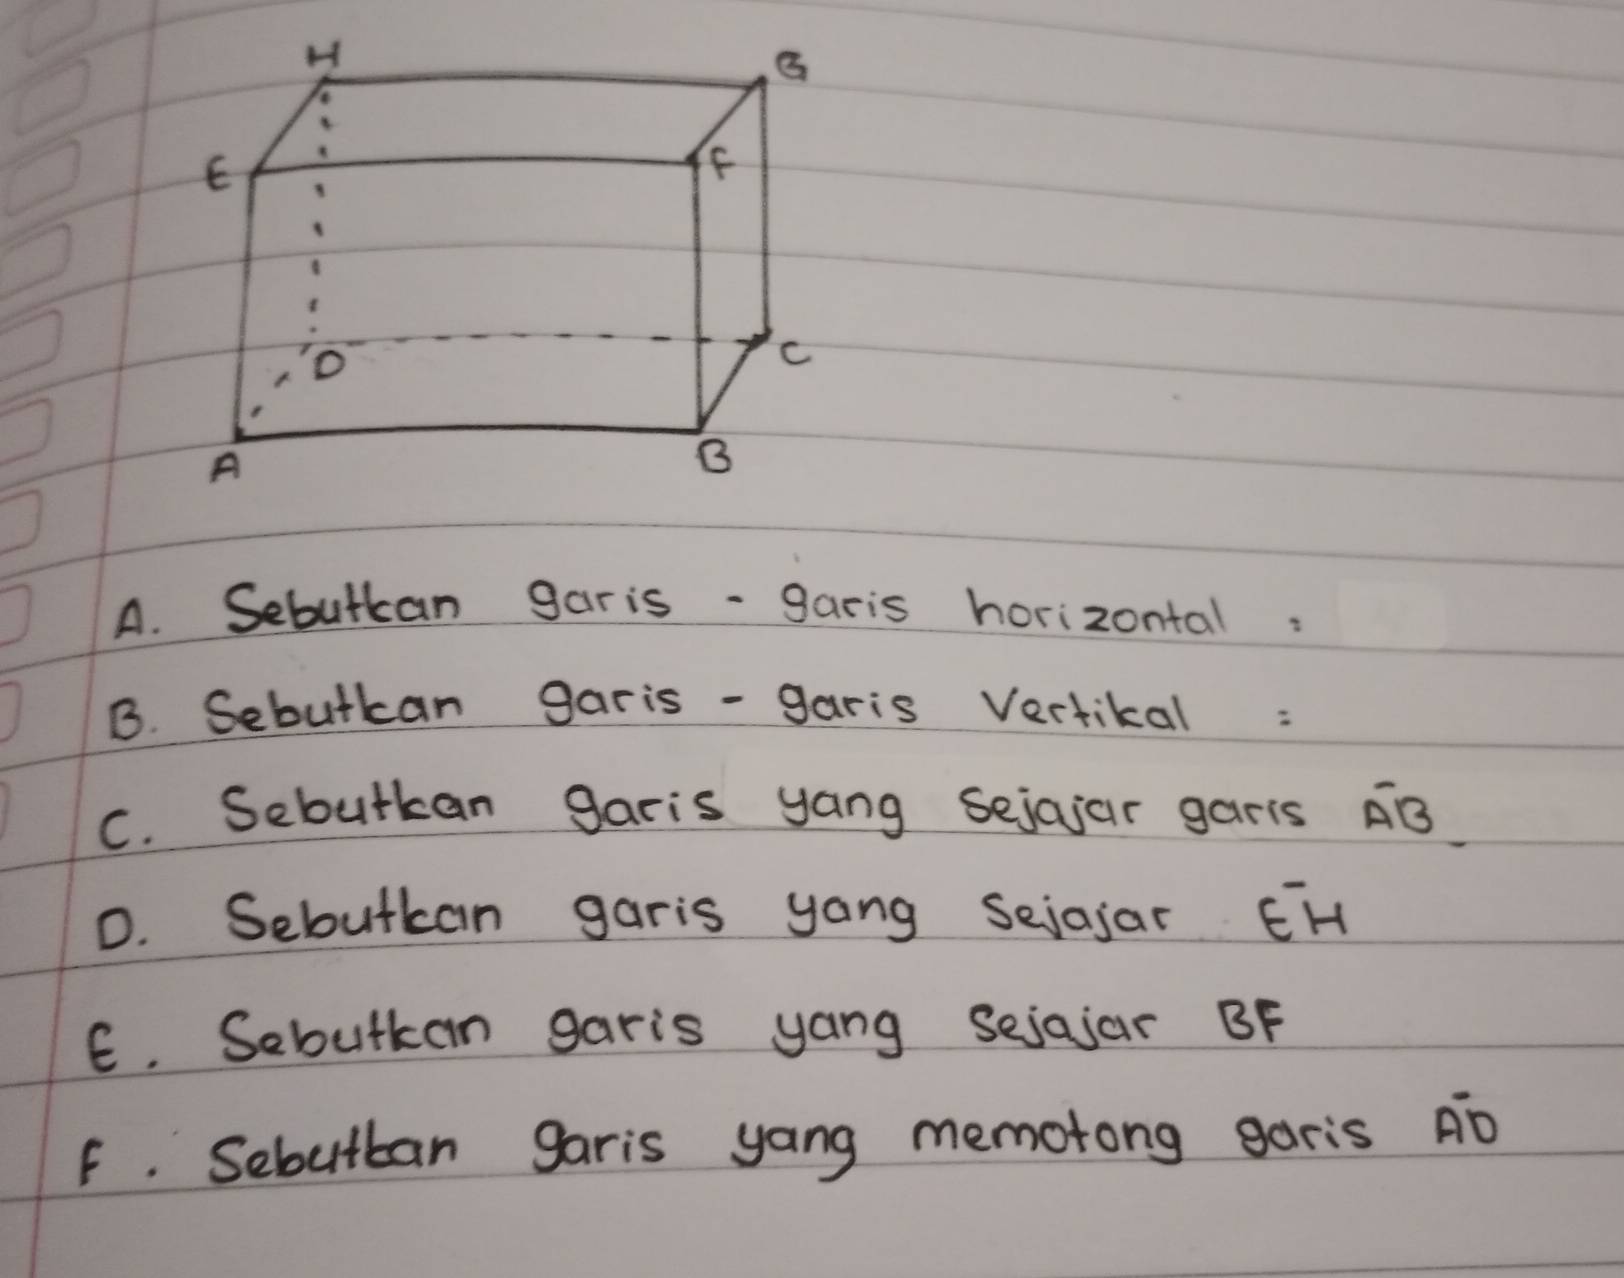 H G
E F
D C
A B
A. Sebutkan garis - garis horizontal :
B. Sebutkan garis - garis Vertikal :
C. Sebutkan garis yang sejajar garis A̅B
D. Sebutkan garis yang sejajar E̅H
E. Sebutkan garis yang sejajar BF
F. Sebutkan garis yang memotong garis A̅D